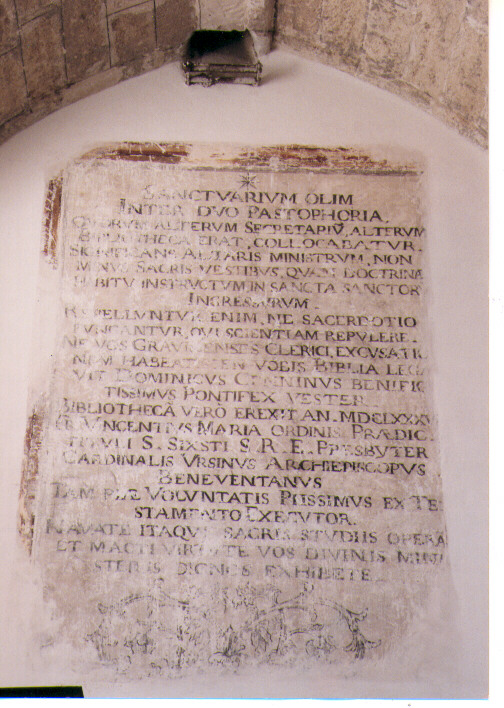 SANCTVARIVM OLIM
INTER DVO PASTOPHORIA.
QVORVM ALTERVM SECRETARIV̄, ALTERVM
BIBLIOTHECA ERAT, COLLOCABATVR.
SIGNIFICANS ALTARIS MINISTRVM, NON
MINVS SACRIS VESTIBVS, QVAM DOCTRINÆ
HABITV INSTRVCTVM IN SANCTA SANCTOR
INGRESSVRVM.
REPELLVNTVR ENIM, NE SACERDOTIO
FVNGANTVR, QVI SCIENTIAM REPVLERE.
NE VOS GRAVINENSES CLERICI, EXCVSATIO
NEM HABEATIS EN VOBIS BIBLIA LEGA
VIT DOMINICVS CENNINVS BENIFIC
TISSIMVS PONTIFEX VESTER
BIBLIOTHECĀ VERO EREXIT AN. MDCLXXX
FR VINCENTIVS MARIA ORDINIS PRÆDIC.
TITVLI S. SIXSTI S. R. E. PRESBYTER
CARDINALIS VRSINVS ARCHIEPISCOPVS
BENEVENTANVS
VOLVNTATIS PIISSIMVS EX TE
STAMENTO EXECVTOR.
NAVATE ITAQVE SACRIS STVDIIS OPERĀ
ET MACTI VIRTVTE VOS DIVINIS MINI
STERIIS DIGNOS EXHIBETE